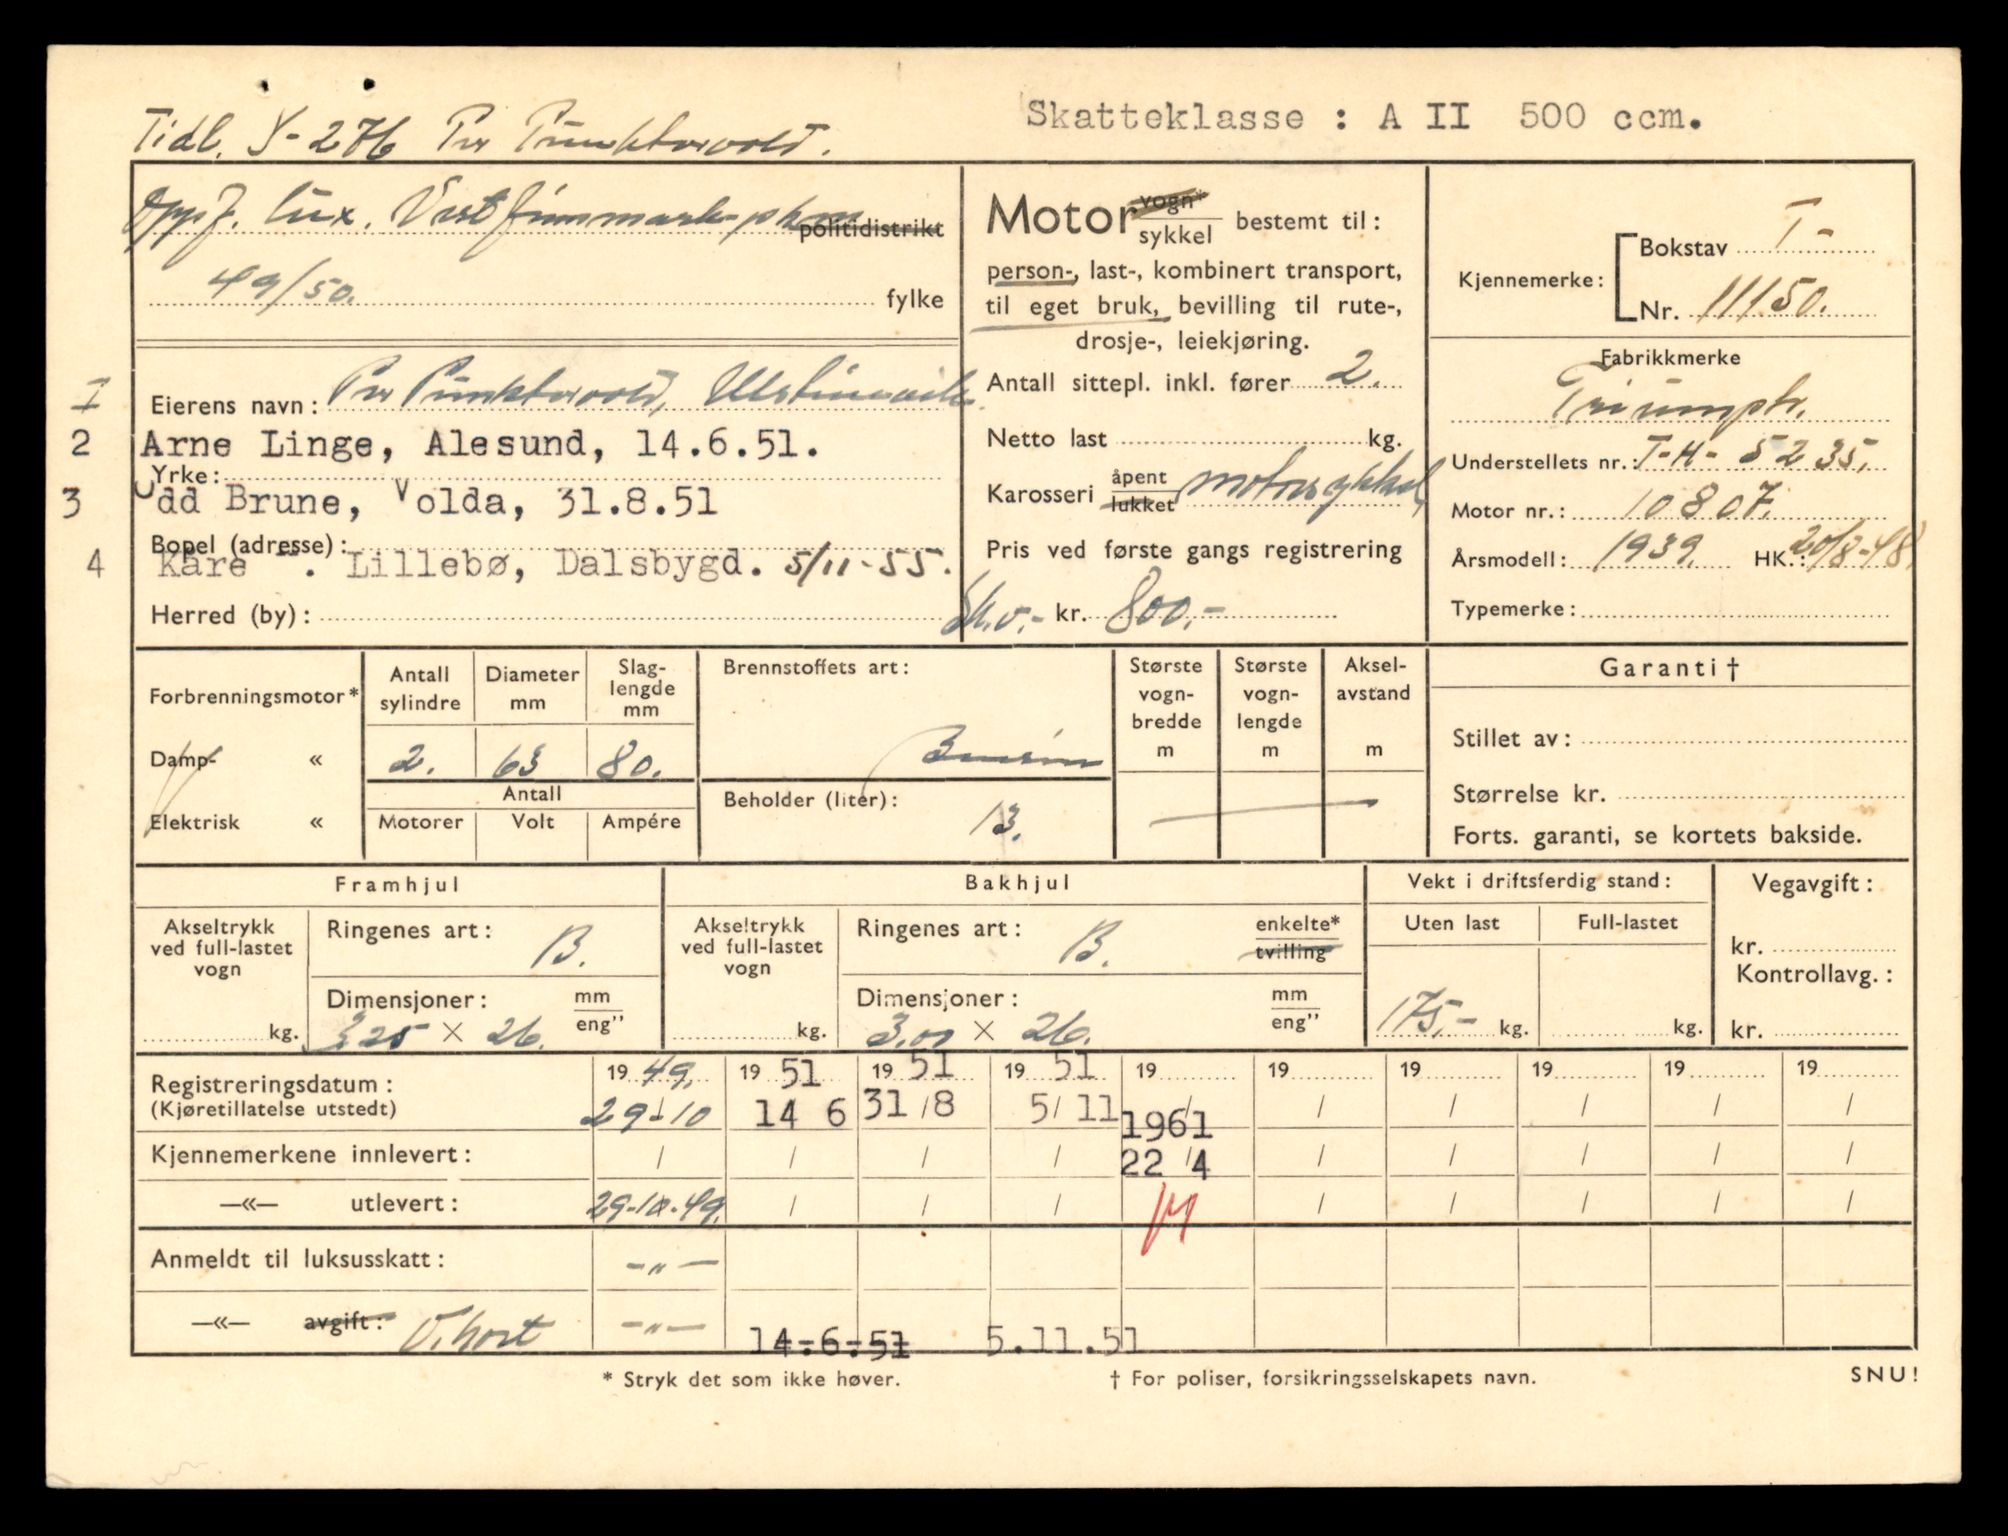 Tidl. Y-276 Per
Skatteklasse : A II 500 ccm.
lux. Vestfinnmark politidistrikt
49/50. fylke
Motor vogn* sykkel bestemt til:
person-, last-, kombinert transport,
til eget bruk, bevilling til rute-,
drosje-, leiekjøring.
Antall sittepl. inkl. fører 2.
Netto last kg.
Karosseri åpent lukket motorsykkel
Pris ved første gangs registrering
Sk.v.- kr. 800.-
Kjennemerke:
Bokstav T-
Nr. 11150.
Fabrikkmerke
Triumph.
Understellets nr.: T-H- 5235.
Motor nr.: 10807.
Årsmodell: 1939. HK.: 20/8-48.
Typemerke:
I Eierens navn: Per
2 Arne Linge, Alesund, 14.6.51.
Yrke:
3 Odd Brune, Volda, 31.8.51
Bopel (adresse):
4 Kåre . Lillebø, Dalsbygd. 5/11-55.
Herred (by):
Forbrenningsmotor*
Damp- «
Elektrisk «
Antall sylindre
Diameter mm
Slag-lengde mm
2. 63 80.
Antall
Motorer Volt Ampére
Brennstoffets art:
Bensin
Beholder (liter):
13.
Største vogn-bredde m
Største vogn-lengde m
Aksel-avstand m
Garanti †
Stillet av:
Størrelse kr.
Forts. garanti, se kortets bakside.
Framhjul
Akseltrykk ved full-lastet vogn
kg.
Ringenes art: B.
Dimensjoner: mm eng”
3.25 × 26.
Bakhjul
Akseltrykk ved full-lastet vogn
kg.
Ringenes art: B. enkelte* tvilling
Dimensjoner: mm eng”
3.00 × 26.
Vekt i driftsferdig stand:
Uten last Full-lastet
175.- kg. kg.
Vegavgift:
kr.
Kontrollavg.:
kr.
Registreringsdatum: 19 49. 19 51 19 51 19 51 19 19 19 19 19 19
(Kjøretillatelse utstedt) 29-10 14 6 31/8 5/11 / / / / / /
1961
Kjennemerkene innlevert: / / / / 22/4 / / / / /
—«— utlevert: 29-10-49. / / / / / / / /
Anmeldt til luksusskatt: -„-
—«— avgift: V.kort -„- 14.6.51 5.11.51
* Stryk det som ikke høver.
† For poliser, forsikringsselskapets navn.
SNU!